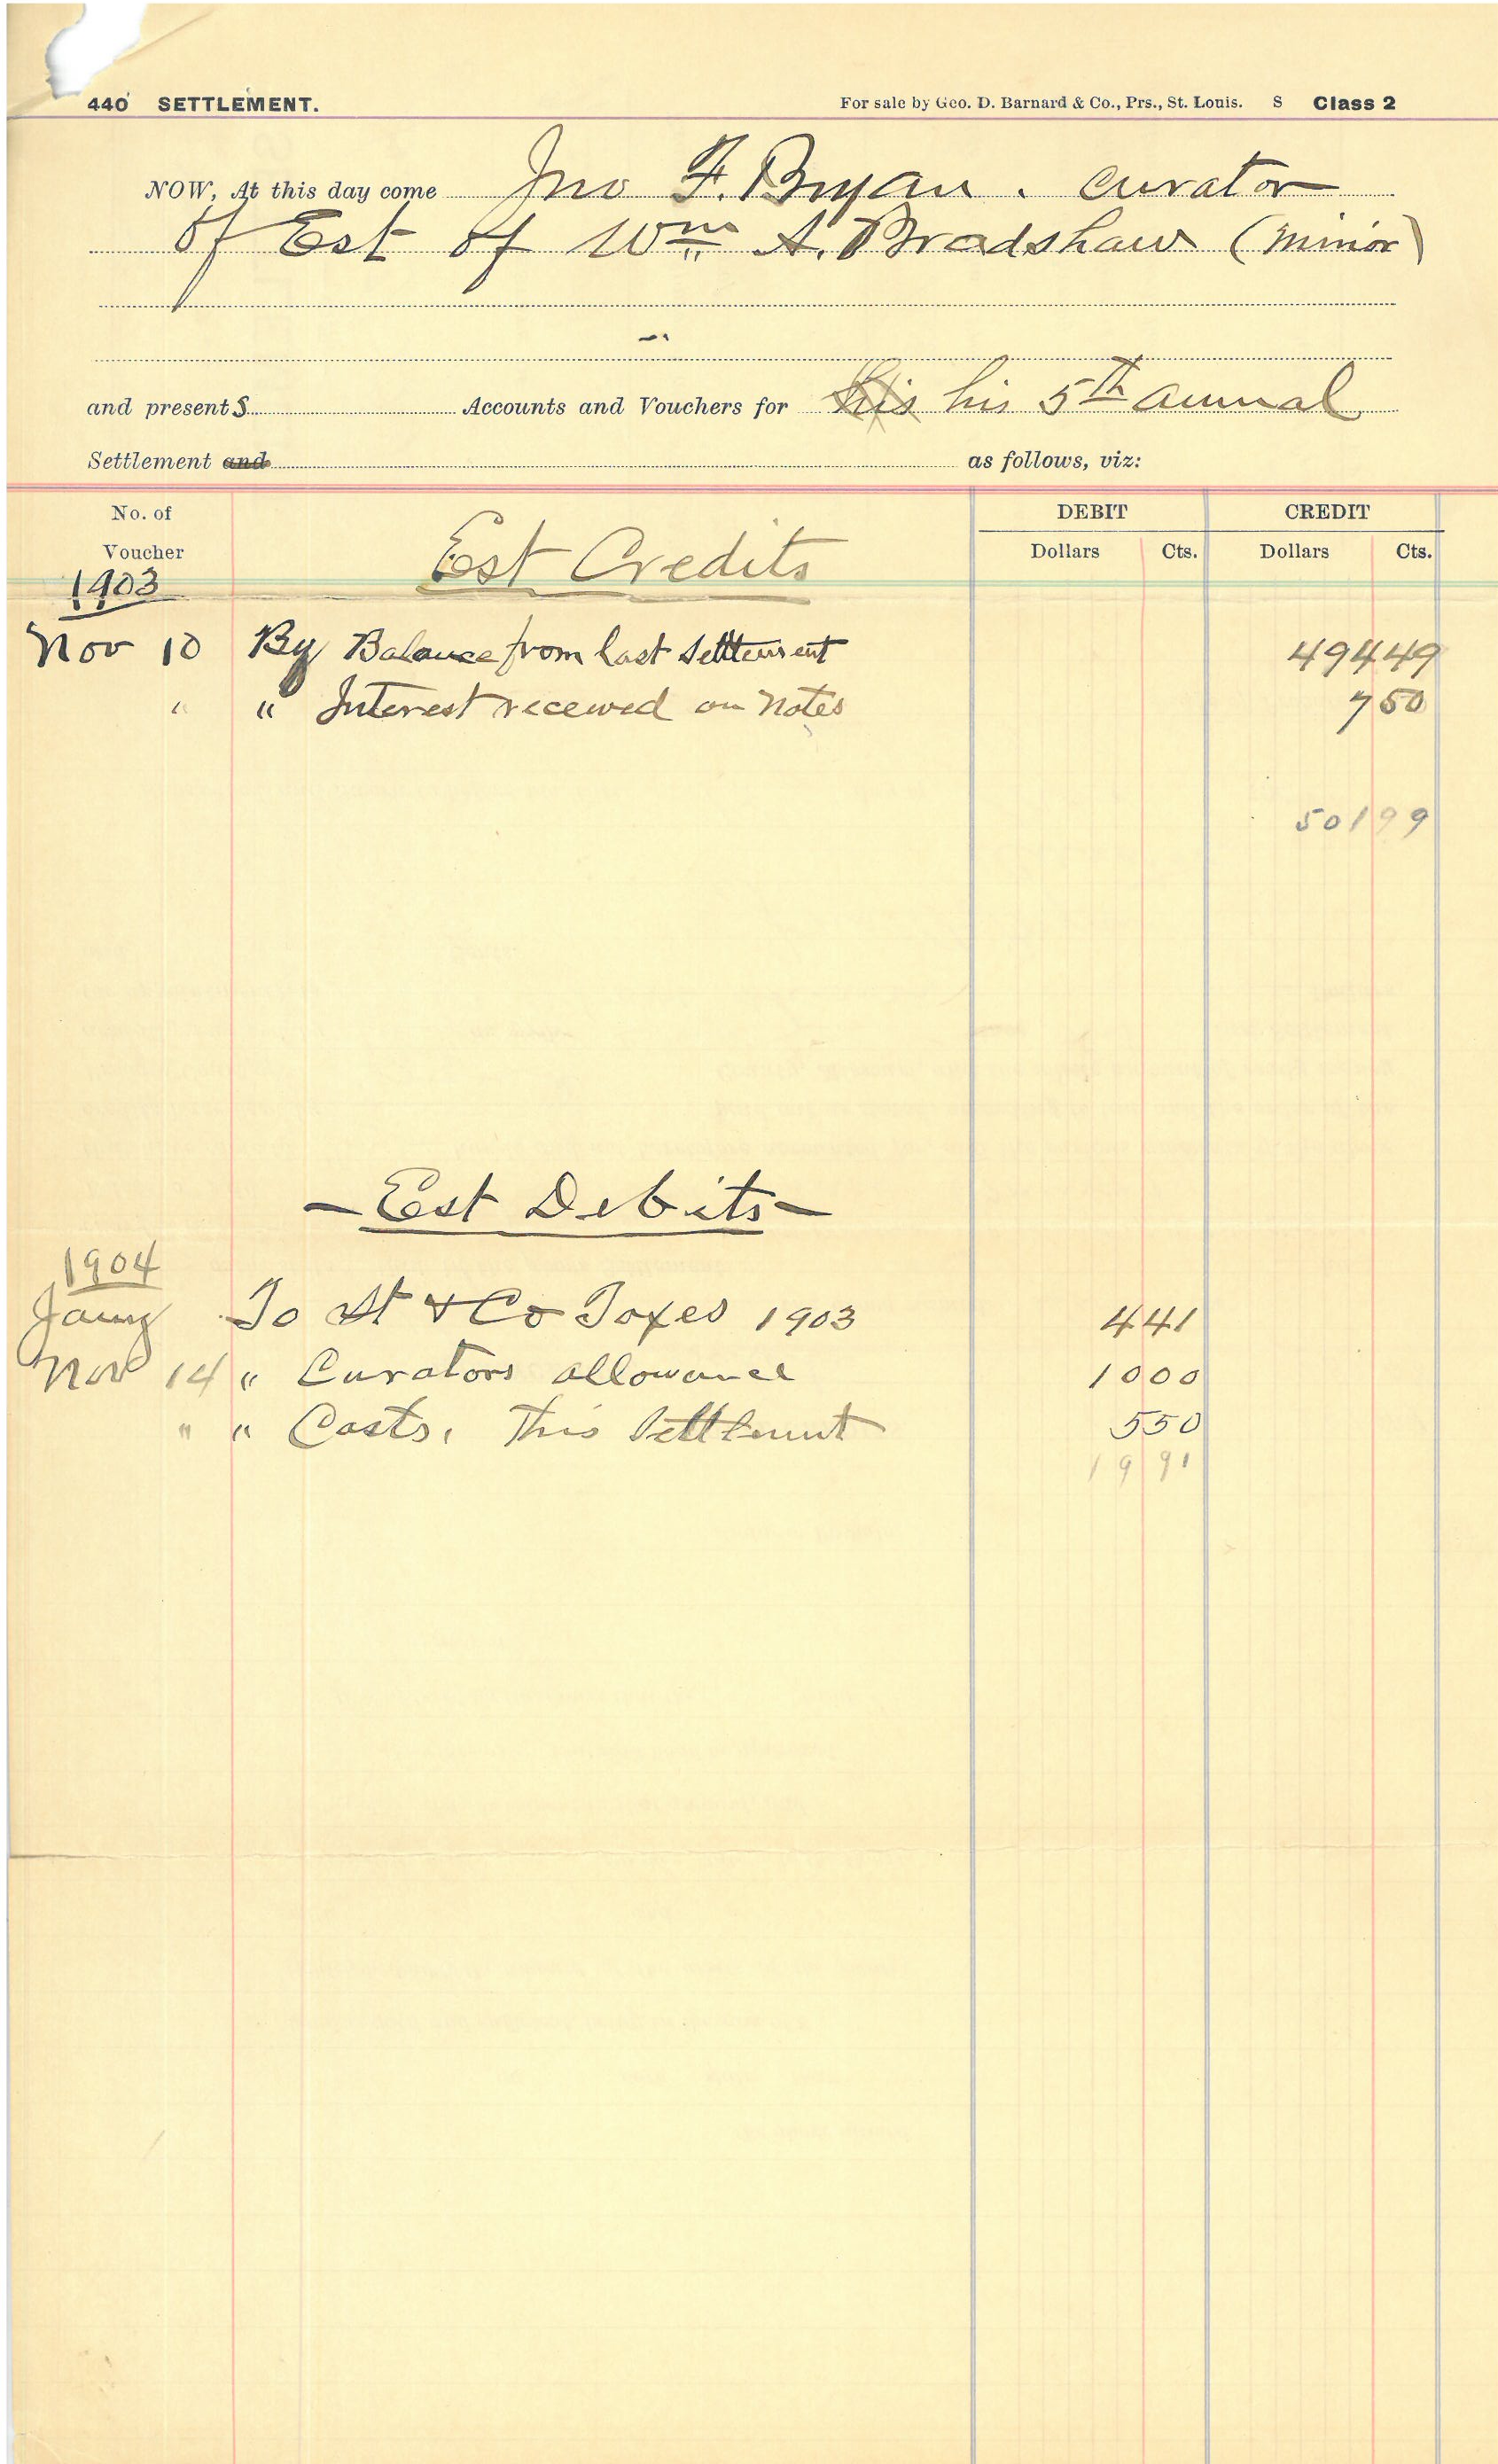 440 SETTLEMENT. For sale by Geo. D. Barnard & Co., Prs., St. Louis. S Class 2
NOW, At this day come Jno F. Bryan . curator
of Est of Wm A. Bradshaw (minor)
and presents Accounts and Vouchers for his his 5th annual
Settlement and as follows, viz:
No. of Voucher DEBIT CREDIT
Dollars Cts. Dollars Cts.
Est Credits
1903
Nov 10 By Balance from last Settlement 494 49
" " Interest received on Notes 7 50
501 99
- Est Debits -
1904
Jany To St & Co Taxes 1903 4 41
Nov 14 " Curators allowance 10 00
" " Costs, This Settlement 5 50
19 91